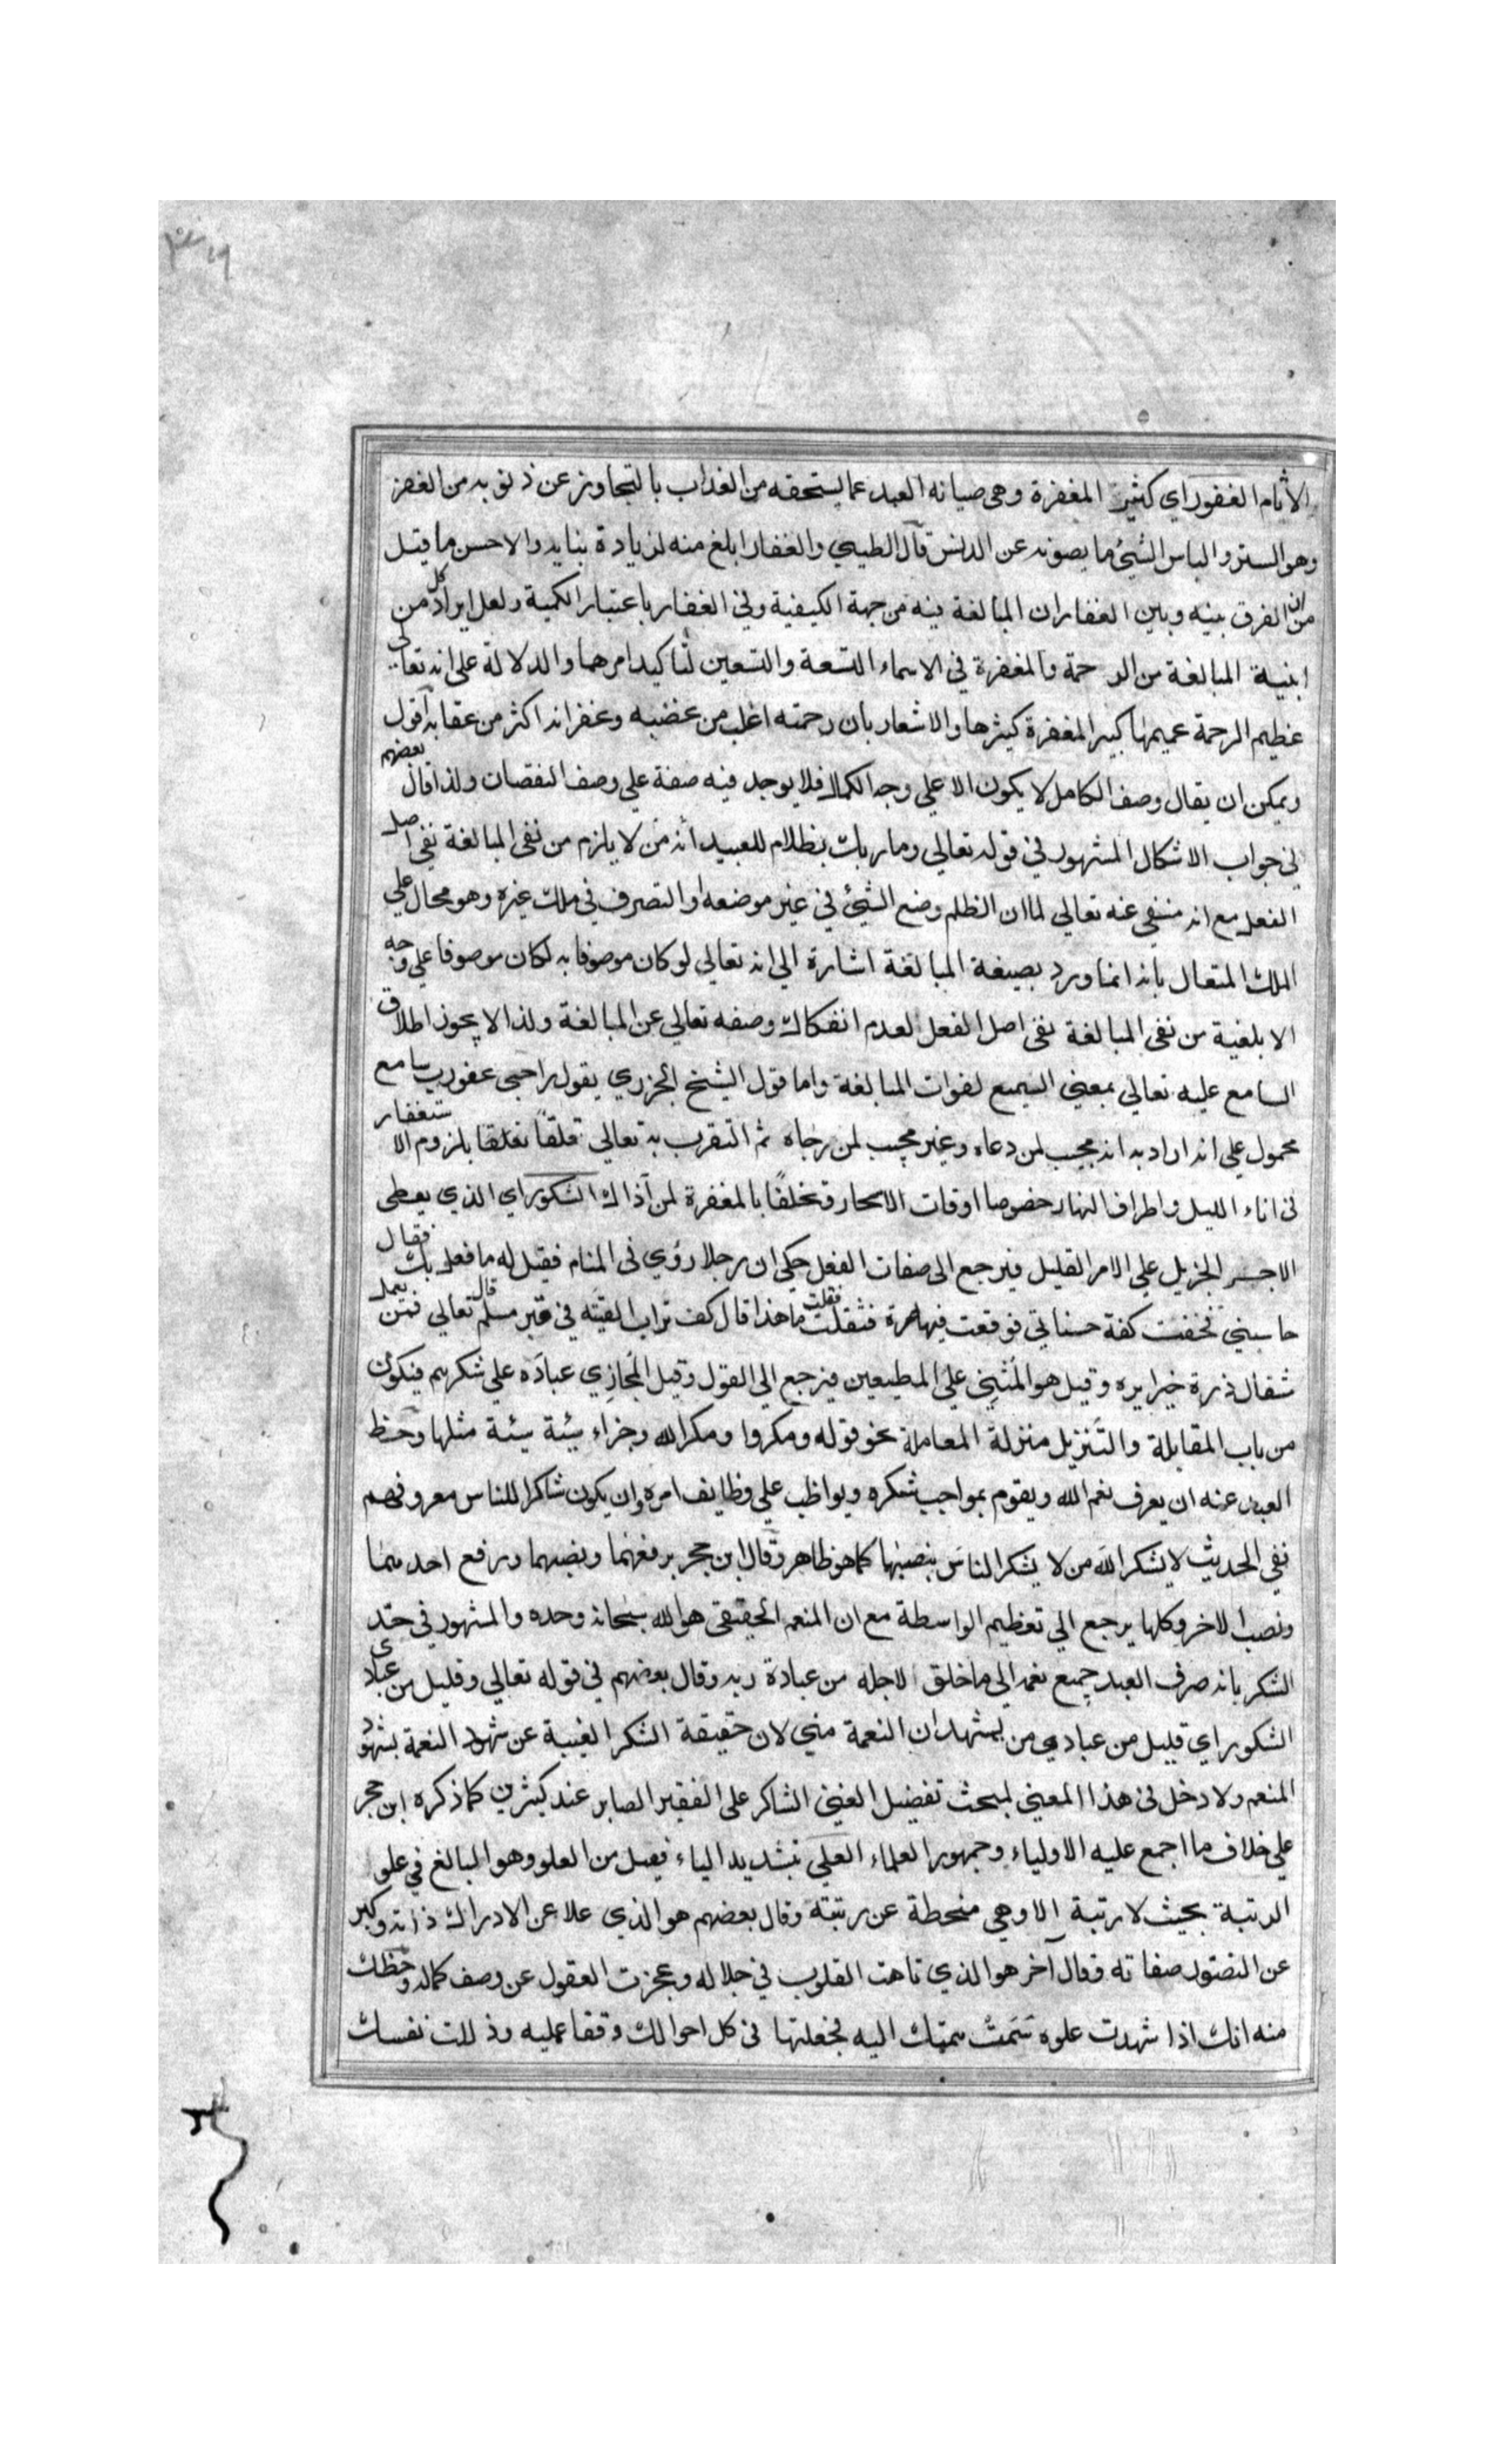 الأثام الغفور اي كثير المغفرة وهي صيانه العبد عما يستحقه من العذاب بالتجاوز عن ذنوبه من الغفر
وهو الستر والباس الشيئ ما يصونه عن الدنس قال الطيبي والغفار ابلغ منه لزيادة بنايه والاحسن ما قيل
من ان الفرق بينه وبين الغفار ان المبالغة فيه من جهة الكيفية وفي الغفار باعتبار الكمية ولعل ايراد كل من
ابنية المبالغة من الرحمة والمغفرة في الاسماء التسعة والتسعين لتأكيد امرهما والدلالة على انه تعالى
عظيم الرحمة عميمها كبير المغفرة كثيرها والاشعار بان رحمته اغلب من غضبه وغفرانه اكثر من عقابه اقول
ويمكن ان يقال وصف الكامل لا يكون الا علي وجه الكمال فلا يوجد فيه صفة علي وصف النقصان ولذا قال بعضهم
في جواب الاشكال المشهور في قوله تعالي وما ربك بظلام للعبيد أنه من لا يلزم من نفي المبالغة نفي اصل
الفعل مع انه منفي عنه تعالي لما ان الظلم وضع الشيئ في غير موضعه او التصرف في ملك غيره وهو محال علي
الملك المتعال بانه انما ورد بصيغة المبالغة اشارة الي انه تعالي لو كان موصوفا به لكان موصوفا علي وجه
الابلغية من نفي المبالغة نفي اصل الفعل لعدم انفكاك وصفه تعالي عن المبالغة ولذا لا يجوز اطلاق
السامع عليه تعالي بمعني السميع لفوات المبالغة واما قول الشيخ الجزري يقول راجي عفو رب سامع
محمول علي انه اراد به انه مجيب لمن دعاه وغير مجيب لمن رجاه ثم التقرب به تعالي تعلقا بلزوم الاستغفار
في اناء الليل واطراف النهار خصوصا اوقات الاسحار وتخلقا بالمغفرة لمن آذاك الشكور اي الذي يعطي
الاجر الجزيل علي الامر القليل فيرجع الى صفات الفعل حكي ان رجلا رؤي في المنام فقيل له ما فعل بك فقال
حاسبني فخفت كفة حسناتي فوقعت فيها صرة فثقلت فقلت ما هذا قال كف تراب القيته في قبر مسلم قال تعالي فمن يعمل
مثقال ذرة خيرا يره وقيل هو المثني علي المطيعين فيرجع الي القول وقيل المجازي عباده علي شكرهم فيكون
من باب المقابلة والتنزيل منزلة المعاملة نحو قوله ومكروا ومكر الله وجزاء سيئة سيئة مثلها وحظ
العبد عنه ان يعرف نعم الله ويقوم بمواجب شكره ويواظب علي وظايف امره وان يكون شاكرا للناس معروفهم
ففي الحديث لا يشكر الله من لا يشكر الناس بنصبها كما هو ظاهر وقال ابن حجر برفعهما ونصبهما ورفع احدهما
ونصب الاخر وكلها يرجع الي تعظيم الواسطة مع ان المنعم الحقيقي هو الله سبحانه وحده والمشهور في حد
الشكر بانه صرف العبد جميع نعمه الي ما خلق لاجله من عبادة ربه وقال بعضهم في قوله تعالي وقليل من عبادي
الشكور اي قليل من عبادي من يشهد ان النعمة مني لان حقيقة الشكر الغيبة عن شهود النعمة بشهود
المنعم ولا دخل في هذا المعني لمبحث تفضيل الغني الشاكر على الفقير الصابر عند كثيرين كما ذكره ابن حجر
علي خلاف ما اجمع عليه الاولياء وجمهور العلماء العلي بتشديد الياء فعيل من العلو وهو البالغ في علو
الرتبة بحيث لا رتبة الا وهي منحطة عن رتبته وقال بعضهم هو الذي علا عن الادراك ذاته وكبر
عن التصور صفاته وقال آخر هو الذي تاهت القلوب في جلاله وعجزت العقول عن وصف كماله وحظك
منه انك اذا شهدت علوه سمت همتك اليه فجعلتها في كل احوالك وقفا عليه وذللت نفسك